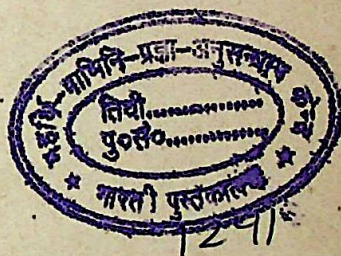 महर्षि-पाणिनि-प्रज्ञा-अनुसन्धान केन्द्र
तिथी................
पु०सं०................
★ भारती पुस्तकालय ★
1241